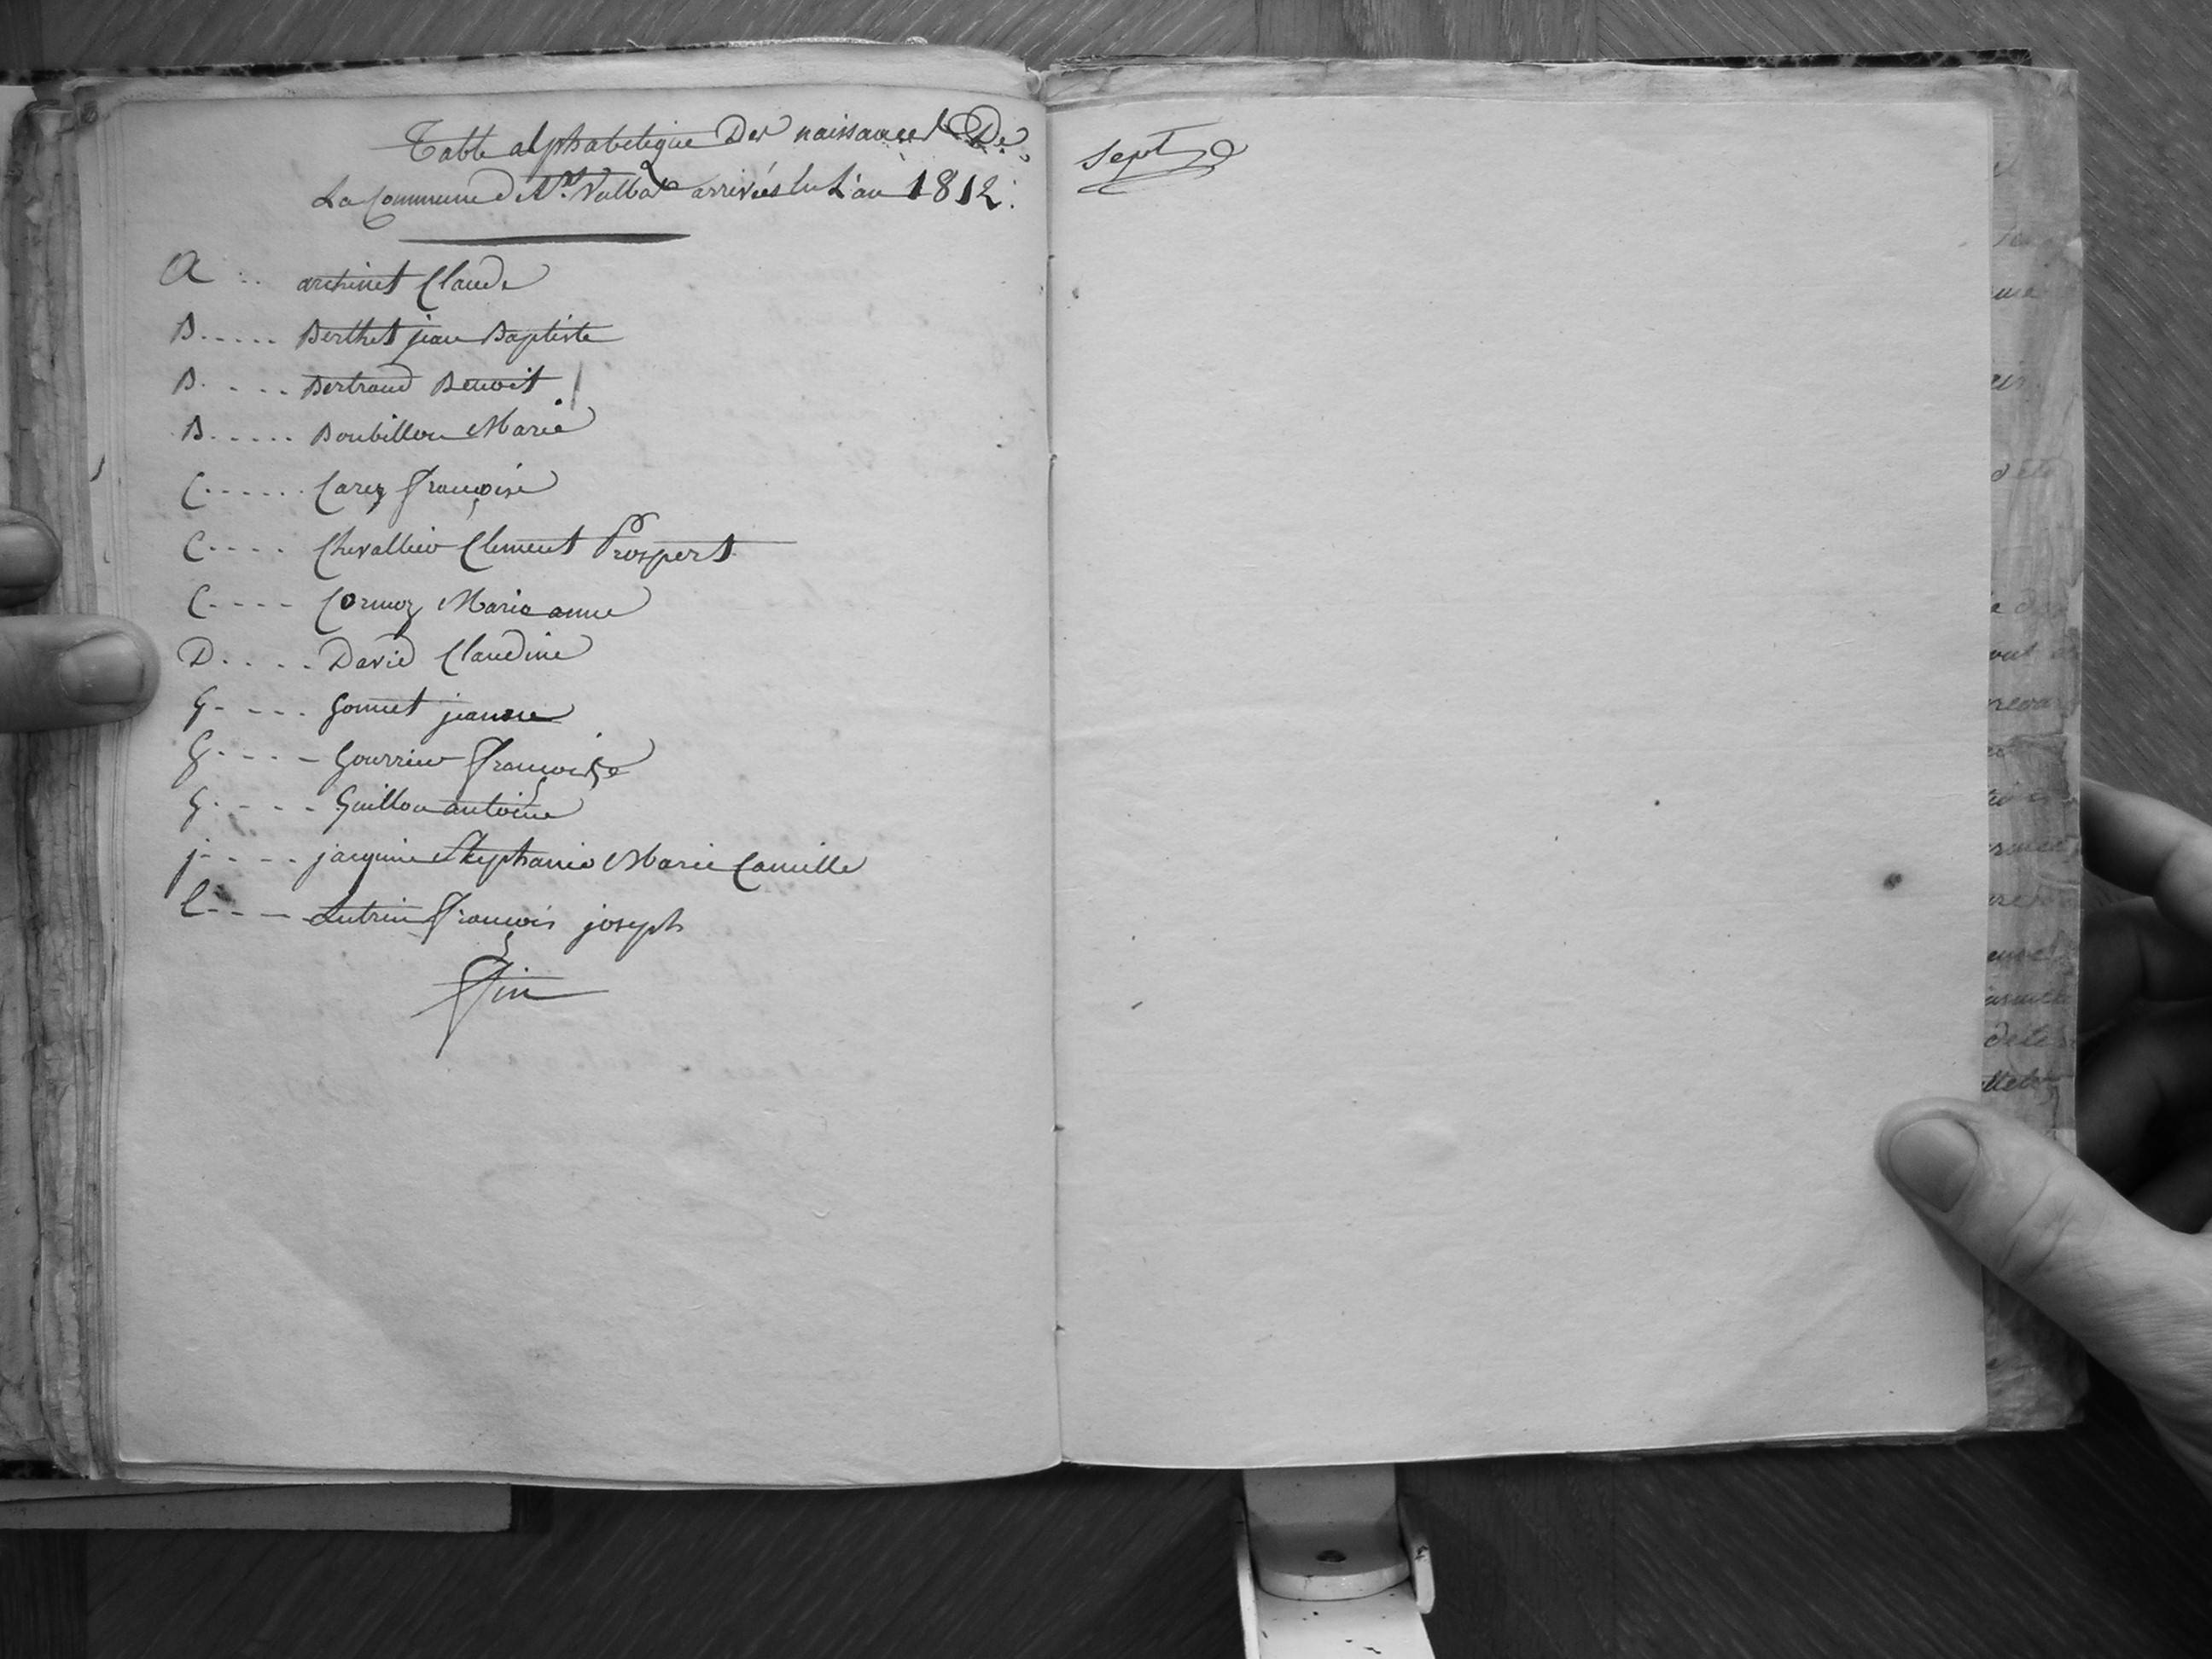 Table alphabetique Des naissances De
La Commune de St Vulbas arrivées en L'an 1812.
A archinet Claude
B Berthet jean Baptiste
B Bertrand Benoit
B Boubillon Marie
C Carez Françoise
C Chevallier Clement Prospert
C Cormoz Marie anne
D David Claudine
G gonnet jeanne
G gourrieu Françoise
G Guillon antoine
j jacquin Stephanie Marie Camille
L Lutrin François joseph
Fin
sept